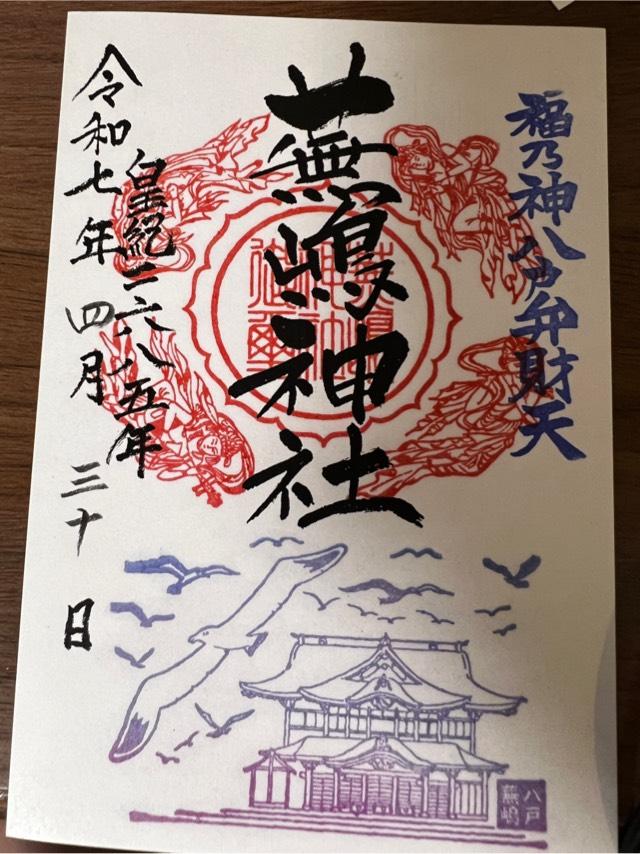 福乃神八戸弁財天
蕪嶋神社
皇紀二六八五年
令和七年 四月 三十 日
八戸
蕪嶋